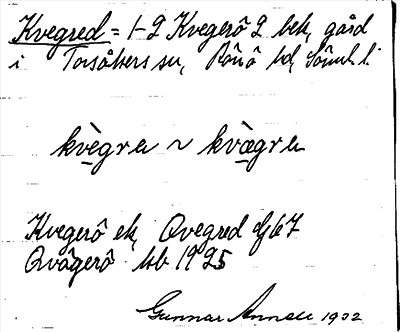 Kvegred = 1-2 Kvegerö 2 bek, gård
i Torsåkers sn, Rönö hd, Söml. l.
kvègra ~ kvægra
Kvegerö ek, Qvegred GG 67
Qvägerö hb 1925
Gunnar Annell 1932